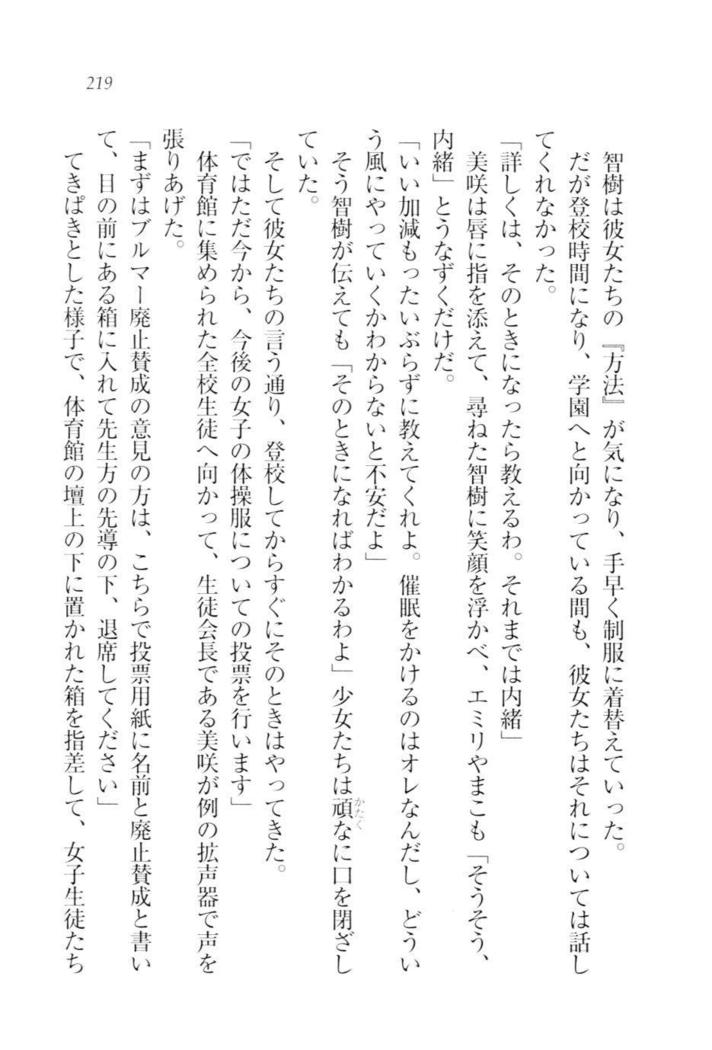 219
智樹は彼女たちの『方法』が気になり、手早く制服に着替えていった。
だが登校時間になり、学園へと向かっている間も、彼女たちはそれについては話し
てくれなかった。
「詳しくは、そのときになったら教えるわ。それまでは内緒」
美咲は唇に指を添えて、尋ねた智樹に笑顔を浮かべ、エミリやまこも「そうそう、
内緒」とうなずくだけだ。
「いい加減もったいぶらずに教えてくれよ。催眠をかけるのはオレなんだし、どうい
う風にやっていくかわからないと不安だよ」
そう智樹が伝えても「そのときになればわかるわよ」少女たちは頑なに口を閉ざし
かたく
ていた。
そして彼女たちの言う通り、登校してからすぐにそのときはやってきた。
「ではただ今から、今後の女子の体操服についての投票を行います」
体育館に集められた全校生徒へ向かって、生徒会長である美咲が例の拡声器で声を
張りあげた。
「まずはブルマー廃止賛成の意見の方は、こちらで投票用紙に名前と廃止賛成と書い
て、目の前にある箱に入れて先生方の先導の下、退席してください」
てきぱきとした様子で、体育館の壇上の下に置かれた箱を指差して、女子生徒たち